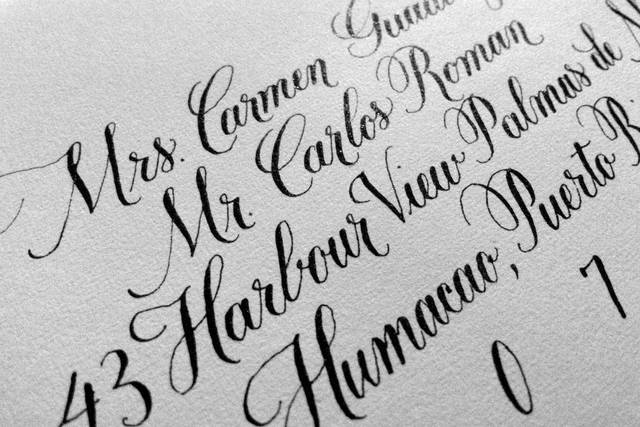 Mrs. Carmen
Mr. Carlos Roman
43 Harbour View Palmas de
Humacao, Puerto
0 7